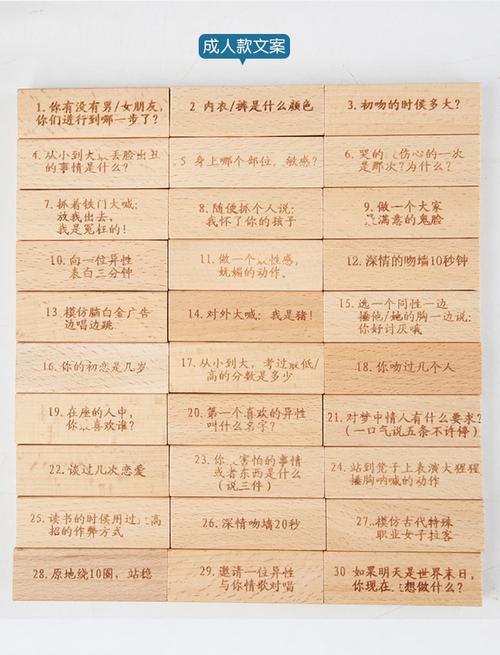 成人款文案
1. 你有没有男/女朋友，
你们进行到哪一步了？
2 内衣/裤是什么颜色
3. 初吻的时候多大？
4. 从小到大 丢脸出丑
的事情是什么？
5 身上哪个部位 敏感？
6. 哭的 伤心的一次
是那次？为什么？
7. 抓着铁门大喊：
放我出去，
我是冤枉的！
8. 随便抓个人说：
我怀了你的孩子
9. 做一个大家
满意的鬼脸
10. 向一位异性
表白三分钟
11. 做一个 性感，
妩媚的动作。
12. 深情的吻墙10秒钟
13 模仿脑白金广告
边唱边跳
14. 对外大喊：我是猪！
15. 选一个同性一边
捶他/她的胸一边说：
你好讨厌哦
16. 你的初恋是几岁
17. 从小到大，考过 低/
高的分数是多少
18. 你吻过几个人
19. 在座的人中，
你 喜欢谁？
20. 第一个喜欢的异性
叫什么名字？
21. 对梦中情人有什么要求？
（一口气说五条不许停）
22. 谈过几次恋爱
23. 你 害怕的事情
或者东西是什么
（说三件）
24. 站到凳子上表演大猩猩
捶胸呐喊的动作
25. 读书的时候用过 高
招的作弊方式
26. 深情吻墙20秒
27. 模仿古代特殊
职业女子拉客
28. 原地绕10圈，站稳
29. 邀请一位异性
与你情歌对唱
30 如果明天是世界末日，
你现在 想做什么？